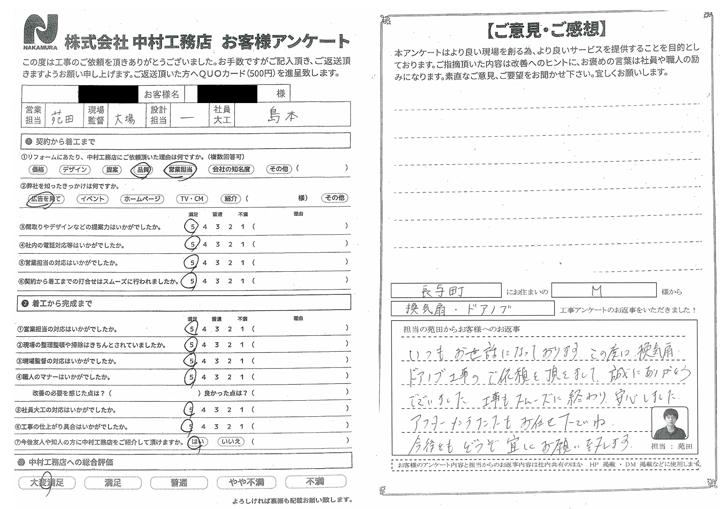 NAKAMURA
株式会社 中村工務店 お客様アンケート
この度は工事のご依頼を頂きありがとうございました。お手数ですがご記入頂き、ご返送頂
きますようお願い申し上げます。ご返送頂いた方へQUOカード(500円)を進呈致します。
お客様名 様
営業担当 苑田 現場監督 大場 設計担当 ー 社員大工 島本
❶ 契約から着工まで
①リフォームにあたり、中村工務店にご依頼頂いた理由は何ですか。(複数回答可)
価格 デザイン 提案 品質 営業担当 会社の知名度 その他 ( )
②弊社を知ったきっかけは何ですか。
広告を見て イベント ホームページ TV・CM 紹介 ( 様) その他
満足 普通 不満 理由
③間取りやデザインなどの提案力はいかがでしたか。 5 4 3 2 1 ( )
④社内の電話対応等はいかがでしたか。 5 4 3 2 1 ( )
⑤営業担当の対応はいかがでしたか。 5 4 3 2 1 ( )
⑥契約から着工までの打合せはスムーズに行われましたか。 5 4 3 2 1 ( )
❷ 着工から完成まで
満足 普通 不満 理由
①営業担当の対応はいかがでしたか。 5 4 3 2 1 ( )
②現場の整理整頓や掃除はきちんとされていましたか。 5 4 3 2 1 ( )
③現場監督の対応はいかがでしたか。 5 4 3 2 1 ( )
④職人のマナーはいかがでしたか。 5 4 3 2 1 ( )
改善の必要を感じた点は?( )良かった点は?( )
⑤社員大工の対応はいかがでしたか。 5 4 3 2 1 ( )
⑥工事の仕上がり具合はいかがでしたか。 5 4 3 2 1 ( )
⑦今後友人や知人の方に中村工務店をご紹介して頂けますか。 はい いいえ ( )
中村工務店への総合評価
大変満足 満足 普通 やや不満 不満
よろしければ裏面も記載お願い致します。
【ご意見・ご感想】
本アンケートはより良い現場を創る為、より良いサービスを提供することを目的とし
ております。ご指摘頂いた内容は改善へのヒントに、お褒めの言葉は社員や職人の励
みになります。素直なご意見、ご要望をお聞かせ下さい。宜しくお願いします。
長与町 にお住まいの M 様から
換気扇・ドアノブ 工事アンケートのお返事をいただきました!
担当の苑田からお客様へのお返事
いつもお世話になっております。この度は換気扇、
ドアノブ工事のご依頼を頂きまして、誠にありがとう
ございました。工事もスムーズに終わり安心しました。
アフターメンテナンスもお任せ下さいね。
今後ともどうぞ宜しくお願い致します。
担当:苑田
お客様のアンケート内容と担当からのお返事内容は社内共有のほか HP 掲載・DM 掲載などに使用します。